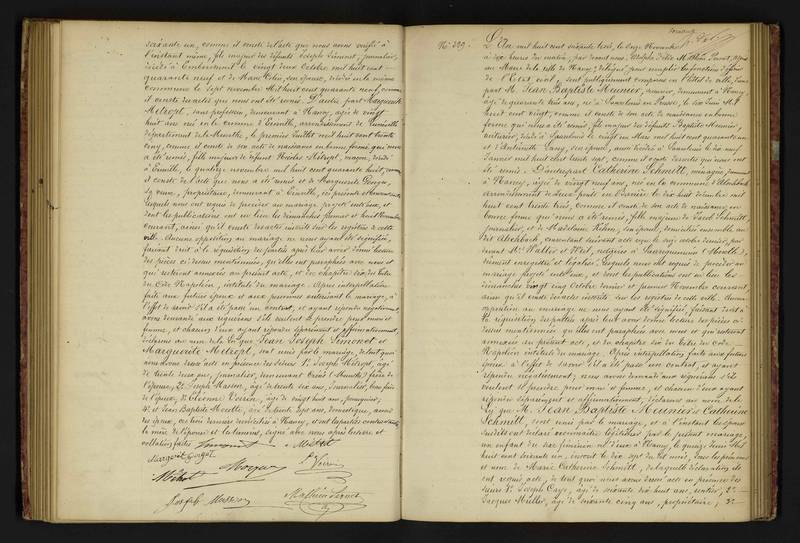 soixante un, comme il conste de l'acte que nous avons vérifié à
l'instant même, fils majeur des défunts Joseph Simonet, journalier,
décédé à le vingt deux Octobre mil huit cent
quarante neuf et de Anne son épouse, décédée en la même
commune le sept novembre Mil huit cent quarante neuf, comme
il conste des actes qui nous ont été remis. D'autre part Marguerite
Metropl, sans profession, demeurant à Nancy, âgée de vingt
huit ans née en la commune d'Einville, arrondissement de Lunéville
département de la Meurthe, le premier Juillet mil huit cent trente
cinq, comme il conste de son acte de naissance en bonne forme qui nous
a été remis, fille majeure de défunt Nicolas Métropl, maçon, décédé
à Einville, le quatorze novembre mil huit cent quarante huit, comme
il conste de l'acte qui nous a été remis et de Marguerite
sa veuve, propriétaire, demeurant à Einville, ici présente et consentante
lesquels nous ont requis de procéder au mariage projeté entr'eux, et
dont les publications ont eu lieu les dimanches premier et huit Novembre
courant, ainsi qu'il conste des actes inscrits sur les registres de cette
ville. Aucune opposition au mariage ne nous ayant été signifiée,
faisant droit à la réquisition des parties après leur avoir donné lecture
des pièces ci-dessus mentionnées, qu'elles ont paraphées avec nous et
qui resteront annexées au présent acte, et du chapitre six du titre
du Code Napoléon, intitulé du mariage. Après interpellation
faite aux futurs époux et aux personnes autorisant le mariage, à
l'effet de savoir s'il a été passé un contrat, et ayant répondu négativement,
avons demandé aux requérans s'ils veulent se prendre pour mari et
femme, et chacun d'eux ayant répondu séparément et affirmativement,
déclarons au nom de la Loi que Jean Joseph Simonet et
Marguerite Metropl, sont unis par le mariage, de tout quoi
nous avons dressé acte en présence des sieurs 1°. Joseph Métropl, âgé
de trente deux ans, journalier, demeurant (Meurthe) frère de
l'épouse, 2°. Joseph Masson, âgé de trente six ans, journalier, beau frère
de l'épouse, 3°. Etienne Voirin, âgé de vingt huit ans,
4°. et Jean Baptiste âgé de trente sept ans, domestique, amis
des époux, ces deux derniers domiciliés à Nancy, et ont les parties contractantes,
la mère de l'épouse et les témoins, signé avec nous après lecture et
collation faites.
Simonet
Voirin
Joseph Masson
Mathieu

N°. 299.
L'An mil huit cent soixante trois, le seize Novembre
à dix heures du matin ; par devant nous,
au Maire de la ville de Nancy, délégué, pour remplir les fonctions d'officier
de l'Etat civil, sont publiquement comparus en l'hôtel de ville, d'une
part M. Jean Baptiste Meunier, demeurant à Nancy,
âgé de quarante trois ans, né à Sarrelouis en Prusse, le Mil
huit cent vingt, comme il conste de son acte de naissance en bonne
forme qui nous a été remis, fils majeur des défunts Baptiste Meunier,
décédé à Sarrelouis le vingt un Mars mil huit cent quarante un
et d'Antoinette son épouse, aussi décédée à Sarrelouis le dix neuf
Janvier mil huit cent trente sept, comme il conste des actes qui nous ont
été remis. D'autre part Catherine Schmitt, ménagère, demeurant
à Nancy, âgée de vingt neuf ans, née en la commune
arrondissement de le dix huit décembre mil
huit cent trente trois, comme il conste de son acte de naissance, en
bonne forme qui nous a été remis, fille majeure de Jacob Schmitt,
journalier, et de Madeleine son épouse, domiciliés ensemble au
dit consentant suivant acte reçu le sept octobre dernier, par
devant Mes. Walter et notaires à Sarreguemines (Moselle),
dûment enregistré et légalisé. Lesquels nous ont requis de procéder au
mariage projeté entr'eux, et dont les publications ont eu lieu les
dimanches vingt cinq Octobre dernier et premier Novembre courant,
ainsi qu'il conste des actes inscrits sur les registres de cette ville. Aucune
opposition au mariage ne nous ayant été signifiée, faisant droit à
la réquisition des parties après leur avoir donné lecture des pièces ci-
dessus mentionnées qu'elles ont paraphées avec nous et qui resteront
annexées au présent acte, et du chapitre six du titre du Code
Napoléon intitulé du mariage. Après interpellation faite aux futurs
époux à l'effet de savoir s'il a été passé un contrat, et ayant
répondu négativement, nous avons demandé aux requérans s'ils
veulent se prendre pour mari et femme, et chacun d'eux ayant
répondu séparément et affirmativement, déclarons au nom de la
Loi que M. Jean Baptiste Meunier et Catherine
Schmitt, sont unis par le mariage, et à l'instant les époux
susdits ont déclaré reconnaître et légitimer par le présent mariage,
un enfant du sexe féminin né d'eux à Nancy, le quinze Mil
huit cent soixante un, inscrit le dix sept du dit mois, sous les prénoms
et nom de Marie Catherine Schmitt, de laquelle déclaration ils
ont requis acte, de tout quoi nous avons dressé acte en présence des
sieurs 1°. Joseph âgé de soixante dix huit ans, rentier, 2°.
Jacques Müller, âgé de soixante cinq ans, propriétaire, 3°.